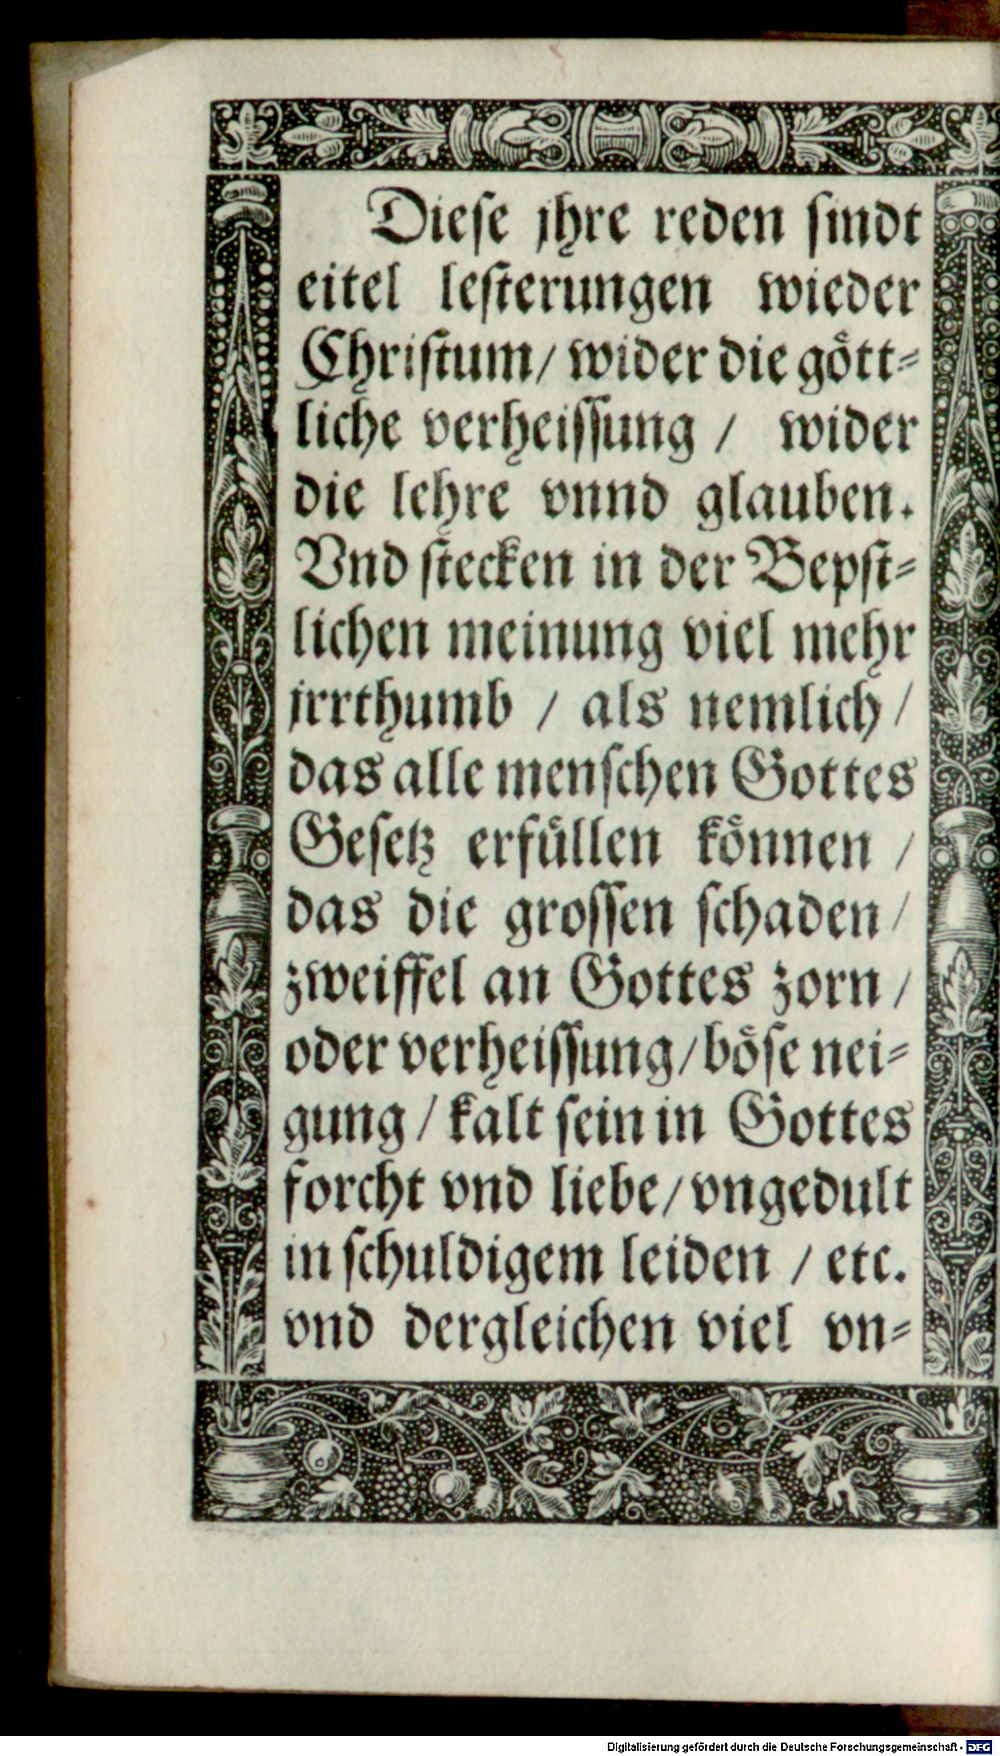 Diese jhre reden sindt
eitel lesterungen wieder
Christum/ wider die gött-
liche verheissung / wider
die lehre vnnd glauben.
Vnd stecken in der Bepst-
lichen meinung viel mehr
jrrthumb / als nemlich /
das alle menschen Gottes
Gesetz erfüllen können /
das die grossen schaden /
zweiffel an Gottes zorn /
oder verheissung/ böse nei-
gung / kalt sein in Gottes
forcht vnd liebe/ vngedult
in schuldigem leiden / etc.
vnd dergleichen viel vn-
Digitalisierung gefördert durch die Deutsche Forschungsgemeinschaft - DFG